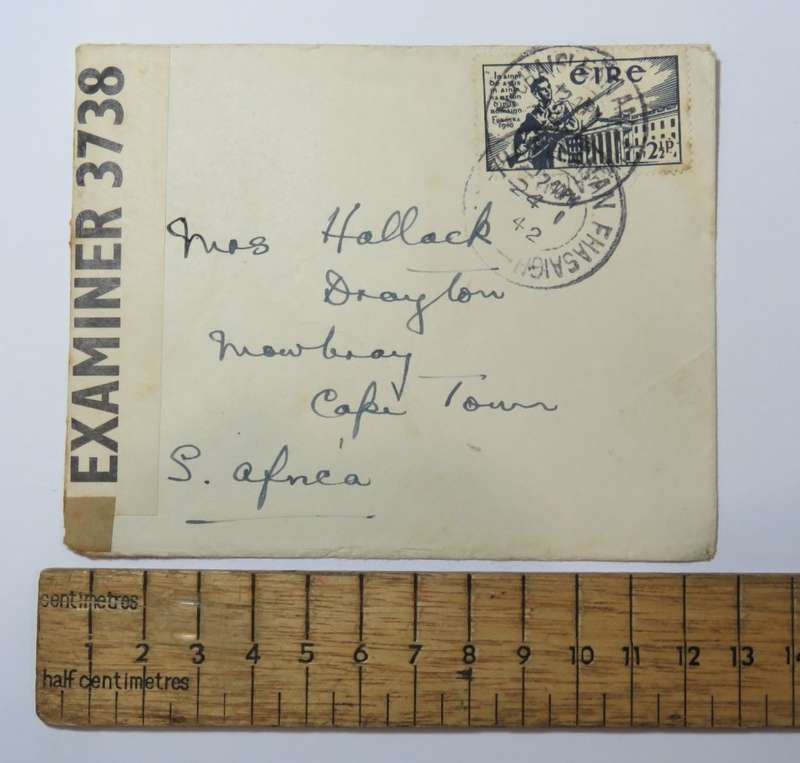 EXAMINER 3738
éIRe
1916
2½P.
24 1
42
EAN FHASAIGH
Mrs Hallack
Drayton
Mowbray
Cape Town
S. Africa
centimetres
1 2 3 4 5 6 7 8 9 10 11 12 13 14
half centimetres